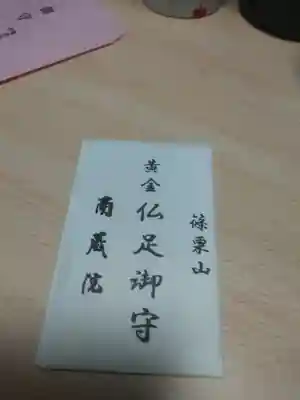 篠栗山
黄金
仏足御守
南蔵院